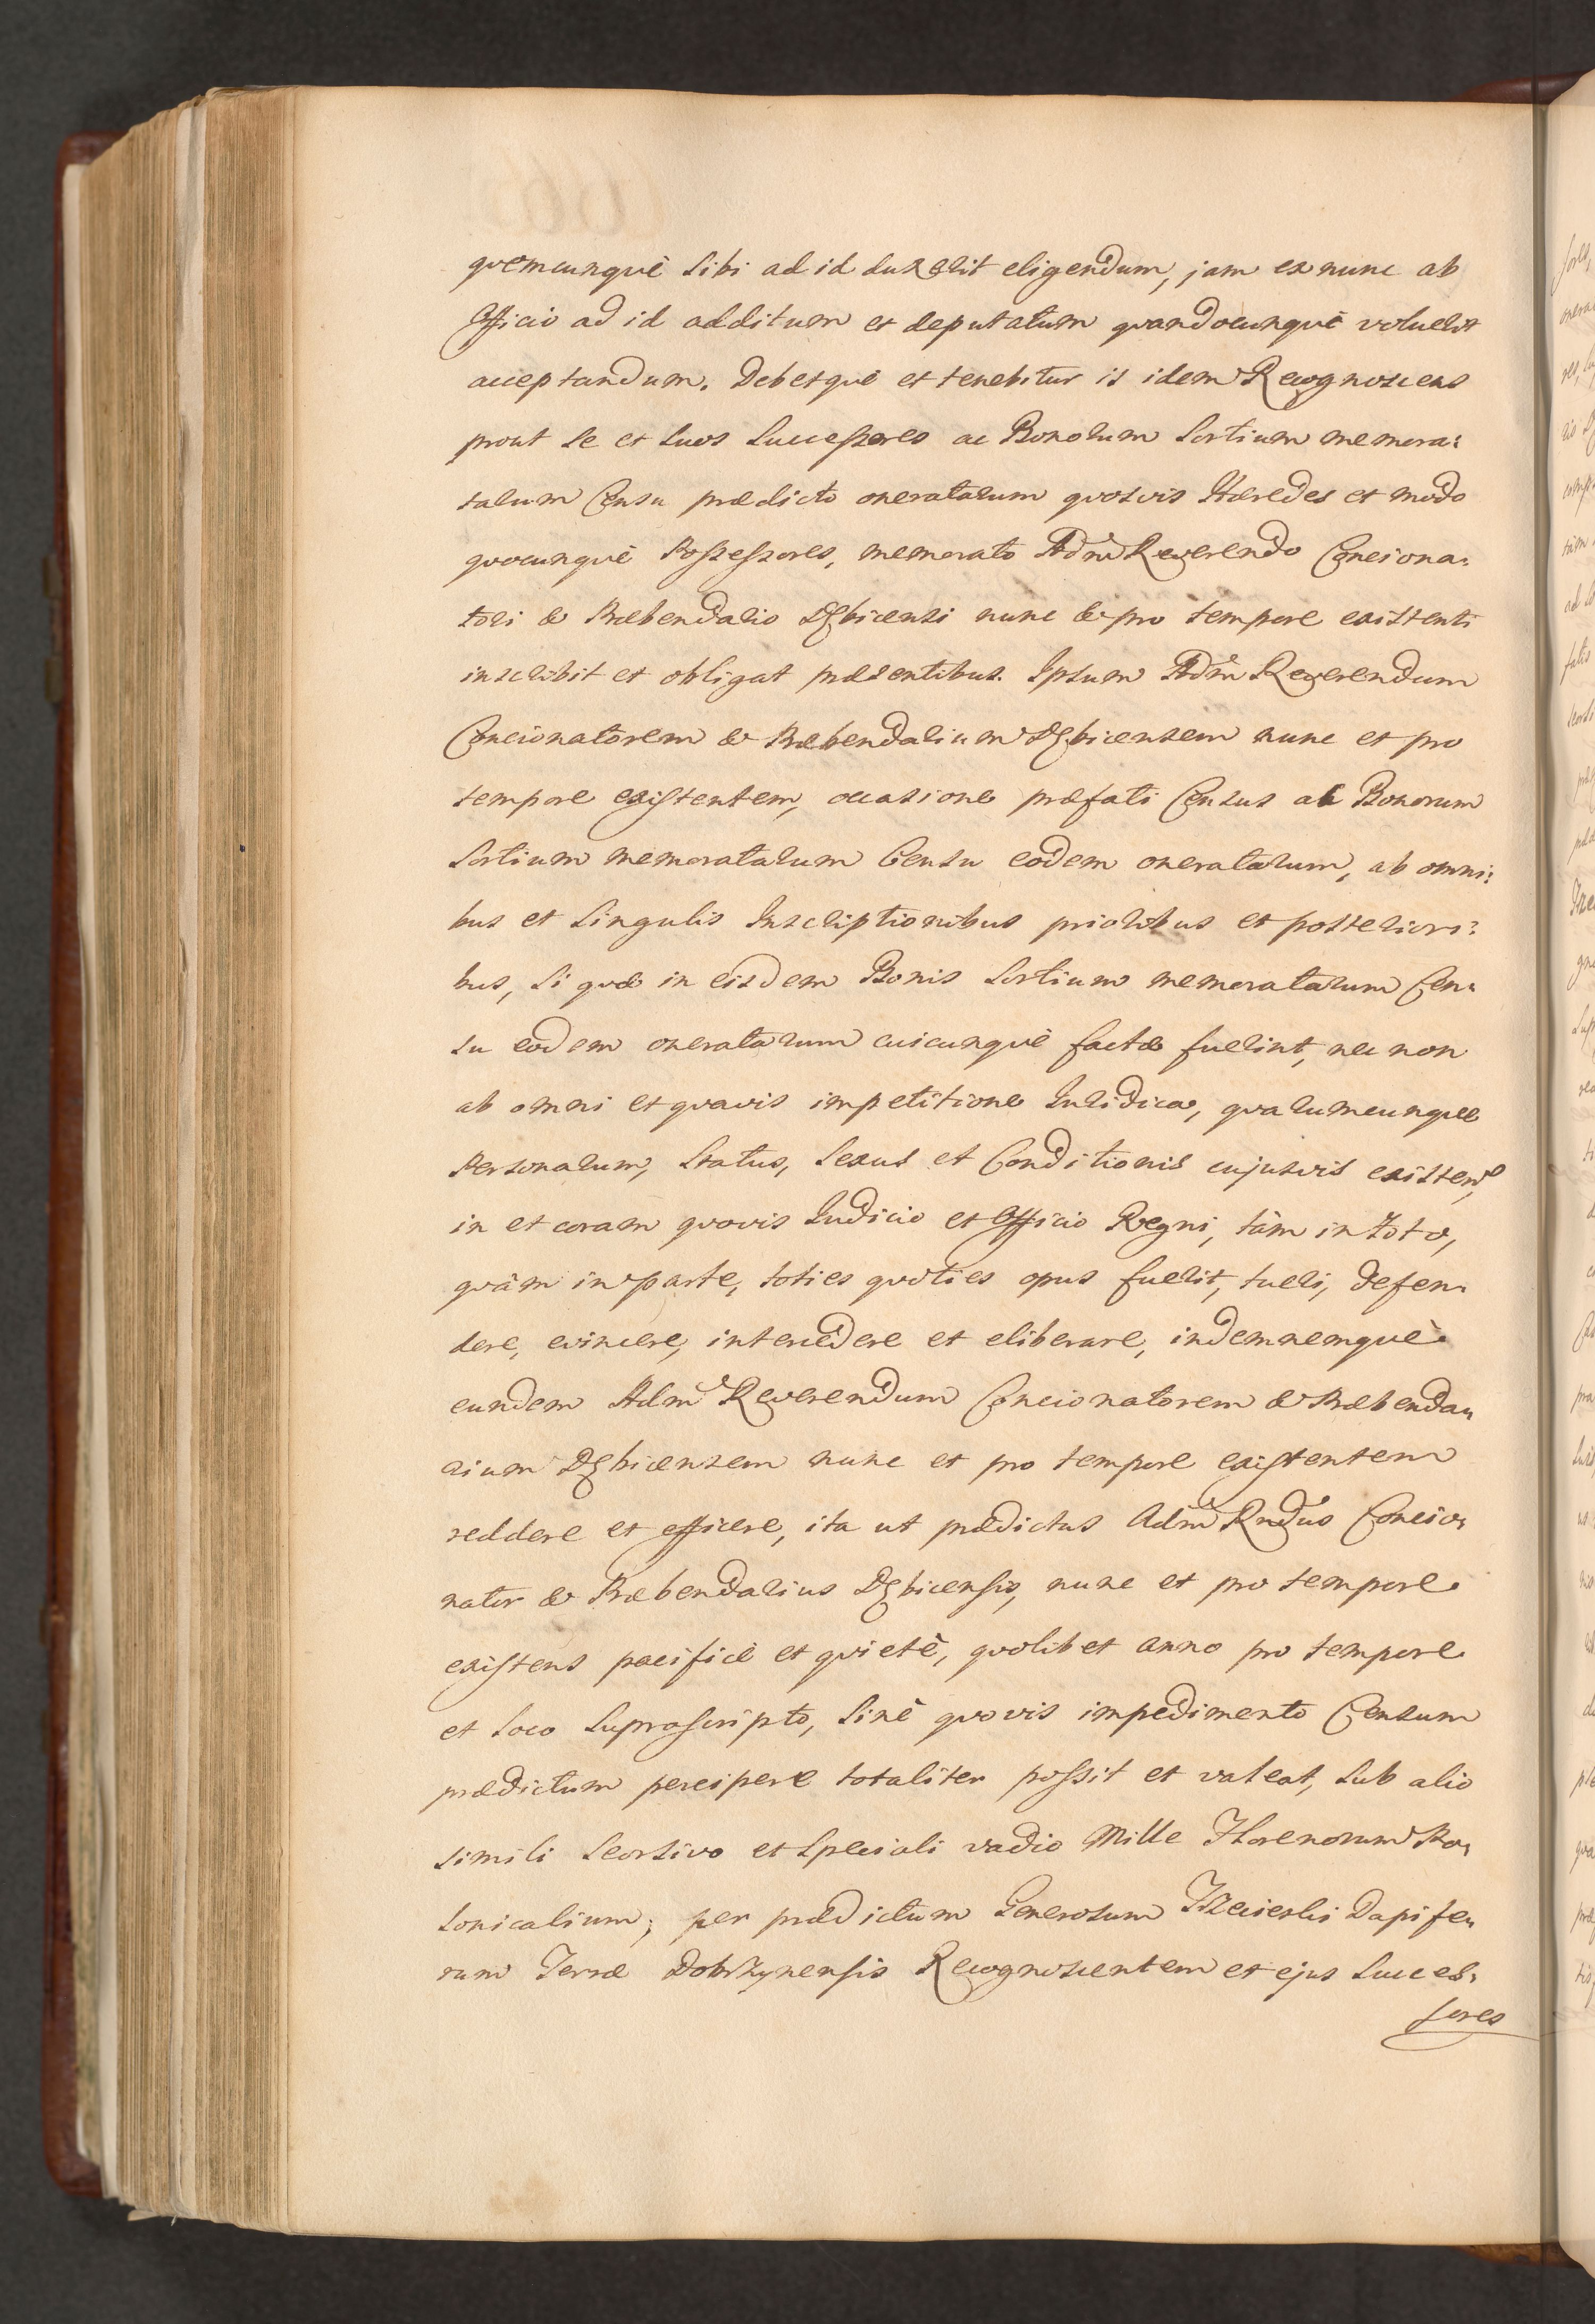 quemcunquè sibi ad id duxerit eligendum, jam ex nunc ab
Officio ad id additum et deputatum quandocunquè voluerit
acceptandum. Debetquè et tenebitur is idem Recognoscens
prout se et suos Successores ac Bonorum Sortium memora:
tarum Censu prædicto oneratarum quosvis Hæredes et modo
quocunquè Possessores, memorato Adm Reverendo Conciona:
tori & Præbendario Dębicensi nunc & pro tempore existenti
inscribit et obligat præsentibus. Ipsum Adm Reverendum
Concionatorem & Præbendarium Dębicensem nunc et pro
tempore existentem, occasione præfati Census ab Bonorum
Sortium memoratarum Censu eodem oneratarum, ab omni:
bus et singulis Inscriptionibus prioribus et posteriori:
bus, si quæ in eisdem Bonis Sortium memoratarum Cen:
su eodem oneratarum cuicunquè factæ fuerint, nec non
ab omni et quavis impetitione Iuridica, quarumcunque
Personarum, Status, Sexus et Conditionis cujusvis existen,
in et coram quovis Iudicio et Officio Regni, tàm in toto,
quàm in parte, toties quoties opus fuerit, tueri, defen:
dere, evincere, intercedere et eliberare, indemnemquè
eundem Adm Reverendum Concionatorem & Præbenda:
rium Dębicensem nunc et pro tempore existentem
reddere et efficere, ita ut prædictus Adm Rndus Concio:
nator & Præbendarius Dębicensis, nunc et pro tempore
existens pacificè et quietè, quolibet anno pro tempore
et loco suprascripto, sinè quovis impedimento Censum
prædictum percipere totaliter possit et valeat, sub alio
simili seorsivo et speciali vadio Mille Florenorum Po:
lonicalium; per prædictum Generosum Trzcieski Dapife:
rum Terræ Dobrzynensis Recognoscentem et ejus Succes:
sores